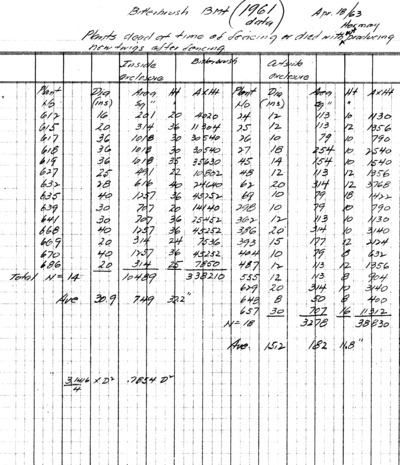 Bitterbrush BMt (1961 data) Apr. 18/63
Hormay
Plants dead at time of fencing or died without producing
new twigs after fencing
Inside Bitterbrush Outside
exclosure exclosure
Plant Dia Area Ht AxHt Plant Dia Area Ht AxHt
No (ins) Sq " " No (ins) Sq " "
612 16 201 20 4020 24 12 113 10 1130
615 20 314 36 11304 25 12 113 12 1356
617 36 1018 30 30540 26 10 79 10 790
618 36 1018 30 30540 27 18 254 10 2540
619 36 1018 35 35630 45 14 154 10 1540
627 25 491 22 10802 48 12 113 12 1356
632 28 616 40 24640 62 20 314 12 3768
635 40 1257 36 45252 69 10 79 18 1422
639 30 707 20 14140 298 10 79 10 790
641 30 707 36 25452 302 12 113 10 1130
668 40 1257 36 45252 386 20 314 10 3140
669 20 314 24 7536 393 15 177 12 2124
670 40 1257 36 45252 404 10 79 8 632
686 20 314 25 7850 487 12 113 12 1356
Total N = 14 10489 338210 535 12 113 8 904
629 20 314 10 3140
Ave 30.9 749 32.2" 648 8 50 8 400
657 30 707 16 11312
N = 18 3278 38830
Ave. 15.2 182 11.8"
3.1416/4 x D² .7854 D²